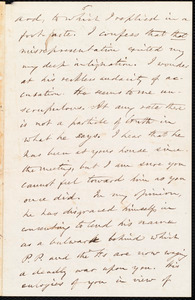 5
nod, to which I replied in a
foot-note. I confess that that
misrepresentation excited my
my deep indignation. I wonder
at his reckless audacity of ac-
cusation. He seems to me un-
scrupulous. At any rate there
is not a particle of truth in
what he says. I hear that he
has been at your house since
the meeting, but I am sure you
cannot feel toward him as you
once did. In my opinion,
he has disgraced himself in
consenting to lend his name
as a bulwark behind which
P.P. and the are now waging
a deadly war upon you. His
eulogies of you in view of